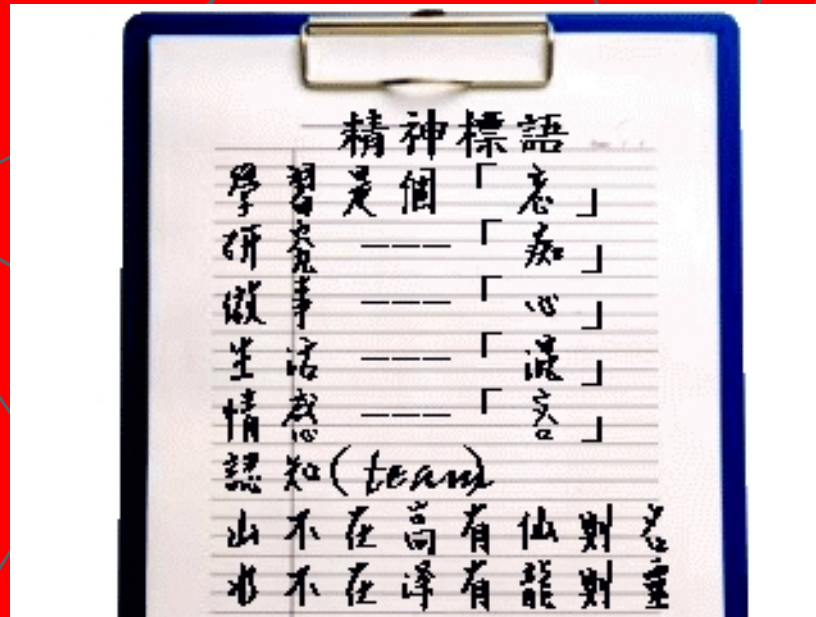 精神標語
學習是個「」
研究———「痴」
做事———「心」
生活———「」
情感———「」
認知(team)
山不在高有仙則名
水不在泽有龍則靈